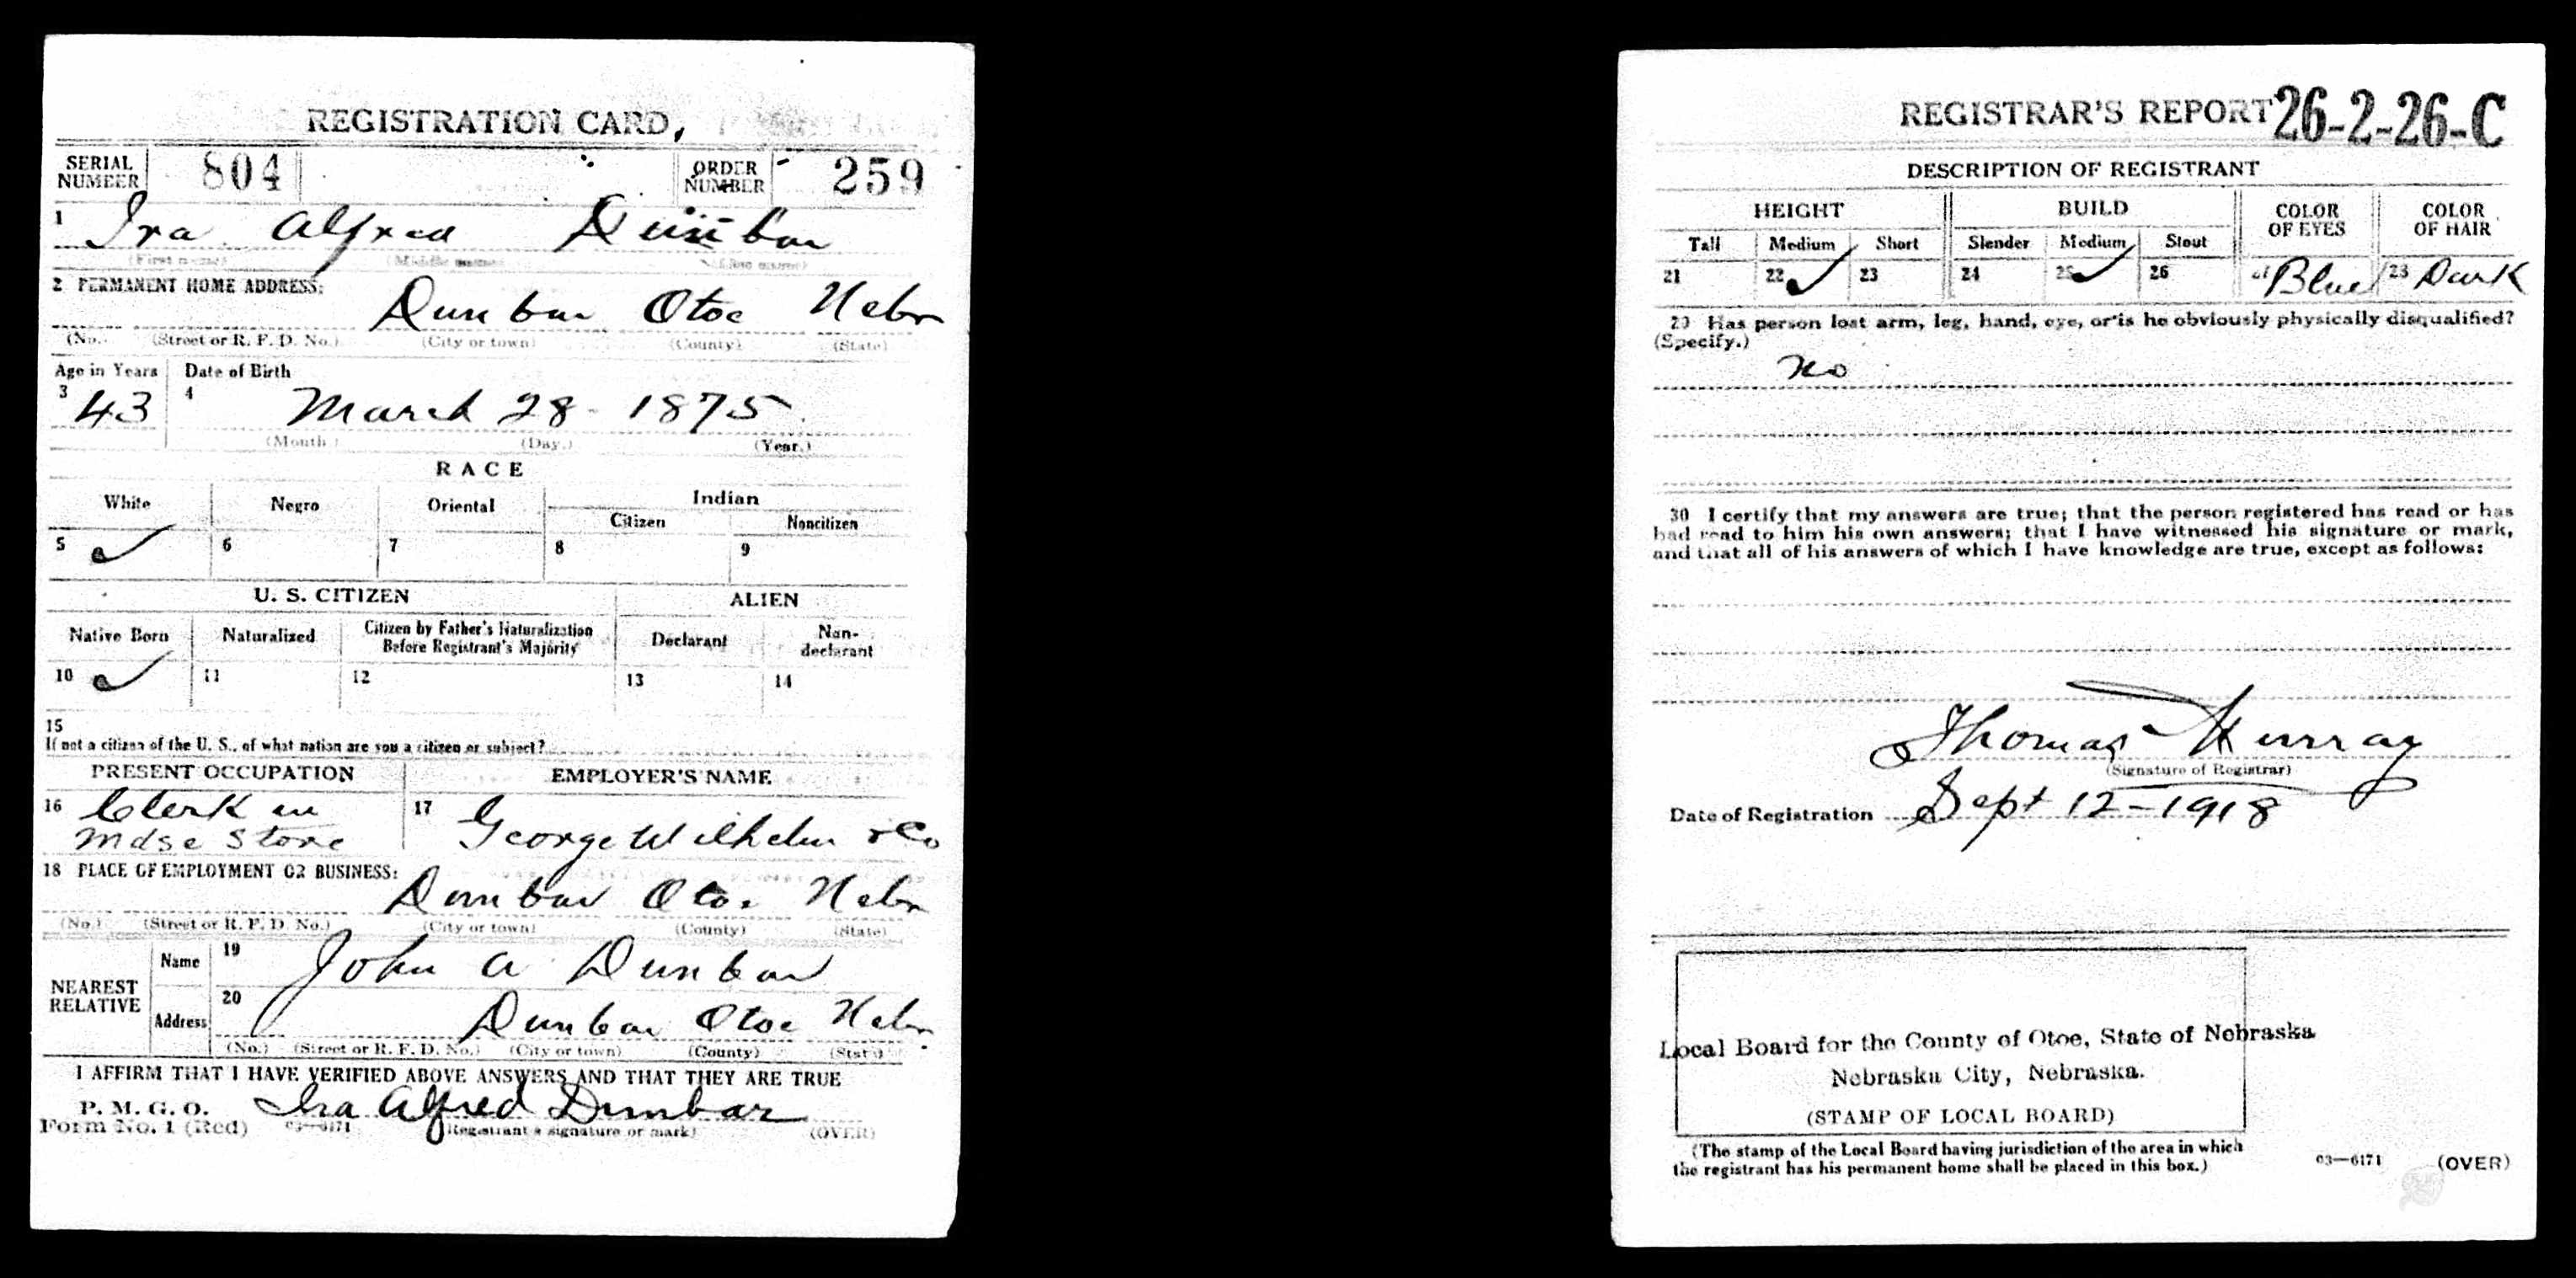 REGISTRATION CARD,
SERIAL NUMBER 804 ORDER NUMBER 259
1 Ira Alfred Dunbar
(First name) (Middle name) (Last name)
2 PERMANENT HOME ADDRESS:
Dunbar Otoe Nebr
(No.) (Street or R. F. D. No.) (City or town) (County) (State)
Age in Years Date of Birth
3 43 4 March 28 - 1875
(Month.) (Day.) (Year.)
RACE
White Negro Oriental Indian
Citizen Noncitizen
5 ✓ 6 7 8 9
U. S. CITIZEN ALIEN
Native Born Naturalized Citizen by Father's Naturalization Before Registrant's Majority Declarant Non-declarant
10 ✓ 11 12 13 14
15
If not a citizen of the U. S., of what nation are you a citizen or subject?
PRESENT OCCUPATION EMPLOYER'S NAME
16 Clerk in Mdse Store 17 George Wilhelm & Co
18 PLACE OF EMPLOYMENT OR BUSINESS:
Dunbar Otoe Nebr
(No.) (Street or R. F. D. No.) (City or town) (County) (State)
NEAREST RELATIVE
Name 19 John A Dunbar
Address 20 Dunbar Otoe Nebr
(No.) (Street or R. F. D. No.) (City or town) (County) (State)
I AFFIRM THAT I HAVE VERIFIED ABOVE ANSWERS AND THAT THEY ARE TRUE
P. M. G. O.
Form No. 1 (Red) 03—6171 Ira Alfred Dunbar
(Registrant's signature or mark) (OVER)
REGISTRAR'S REPORT 26-2-26-C
DESCRIPTION OF REGISTRANT
HEIGHT BUILD COLOR OF EYES COLOR OF HAIR
Tall Medium Short Slender Medium Stout
21 22 ✓ 23 24 25 ✓ 26 27 Blue 28 Dark
29 Has person lost arm, leg, hand, eye, or is he obviously physically disqualified?
(Specify.)
no
30 I certify that my answers are true; that the person registered has read or has
had read to him his own answers; that I have witnessed his signature or mark,
and that all of his answers of which I have knowledge are true, except as follows:
Thomas Murray
(Signature of Registrar)
Date of Registration Sept 12 - 1918
Local Board for the County of Otoe, State of Nebraska
Nebraska City, Nebraska.
(STAMP OF LOCAL BOARD)
(The stamp of the Local Board having jurisdiction of the area in which
the registrant has his permanent home shall be placed in this box.)
03—6171 (OVER)